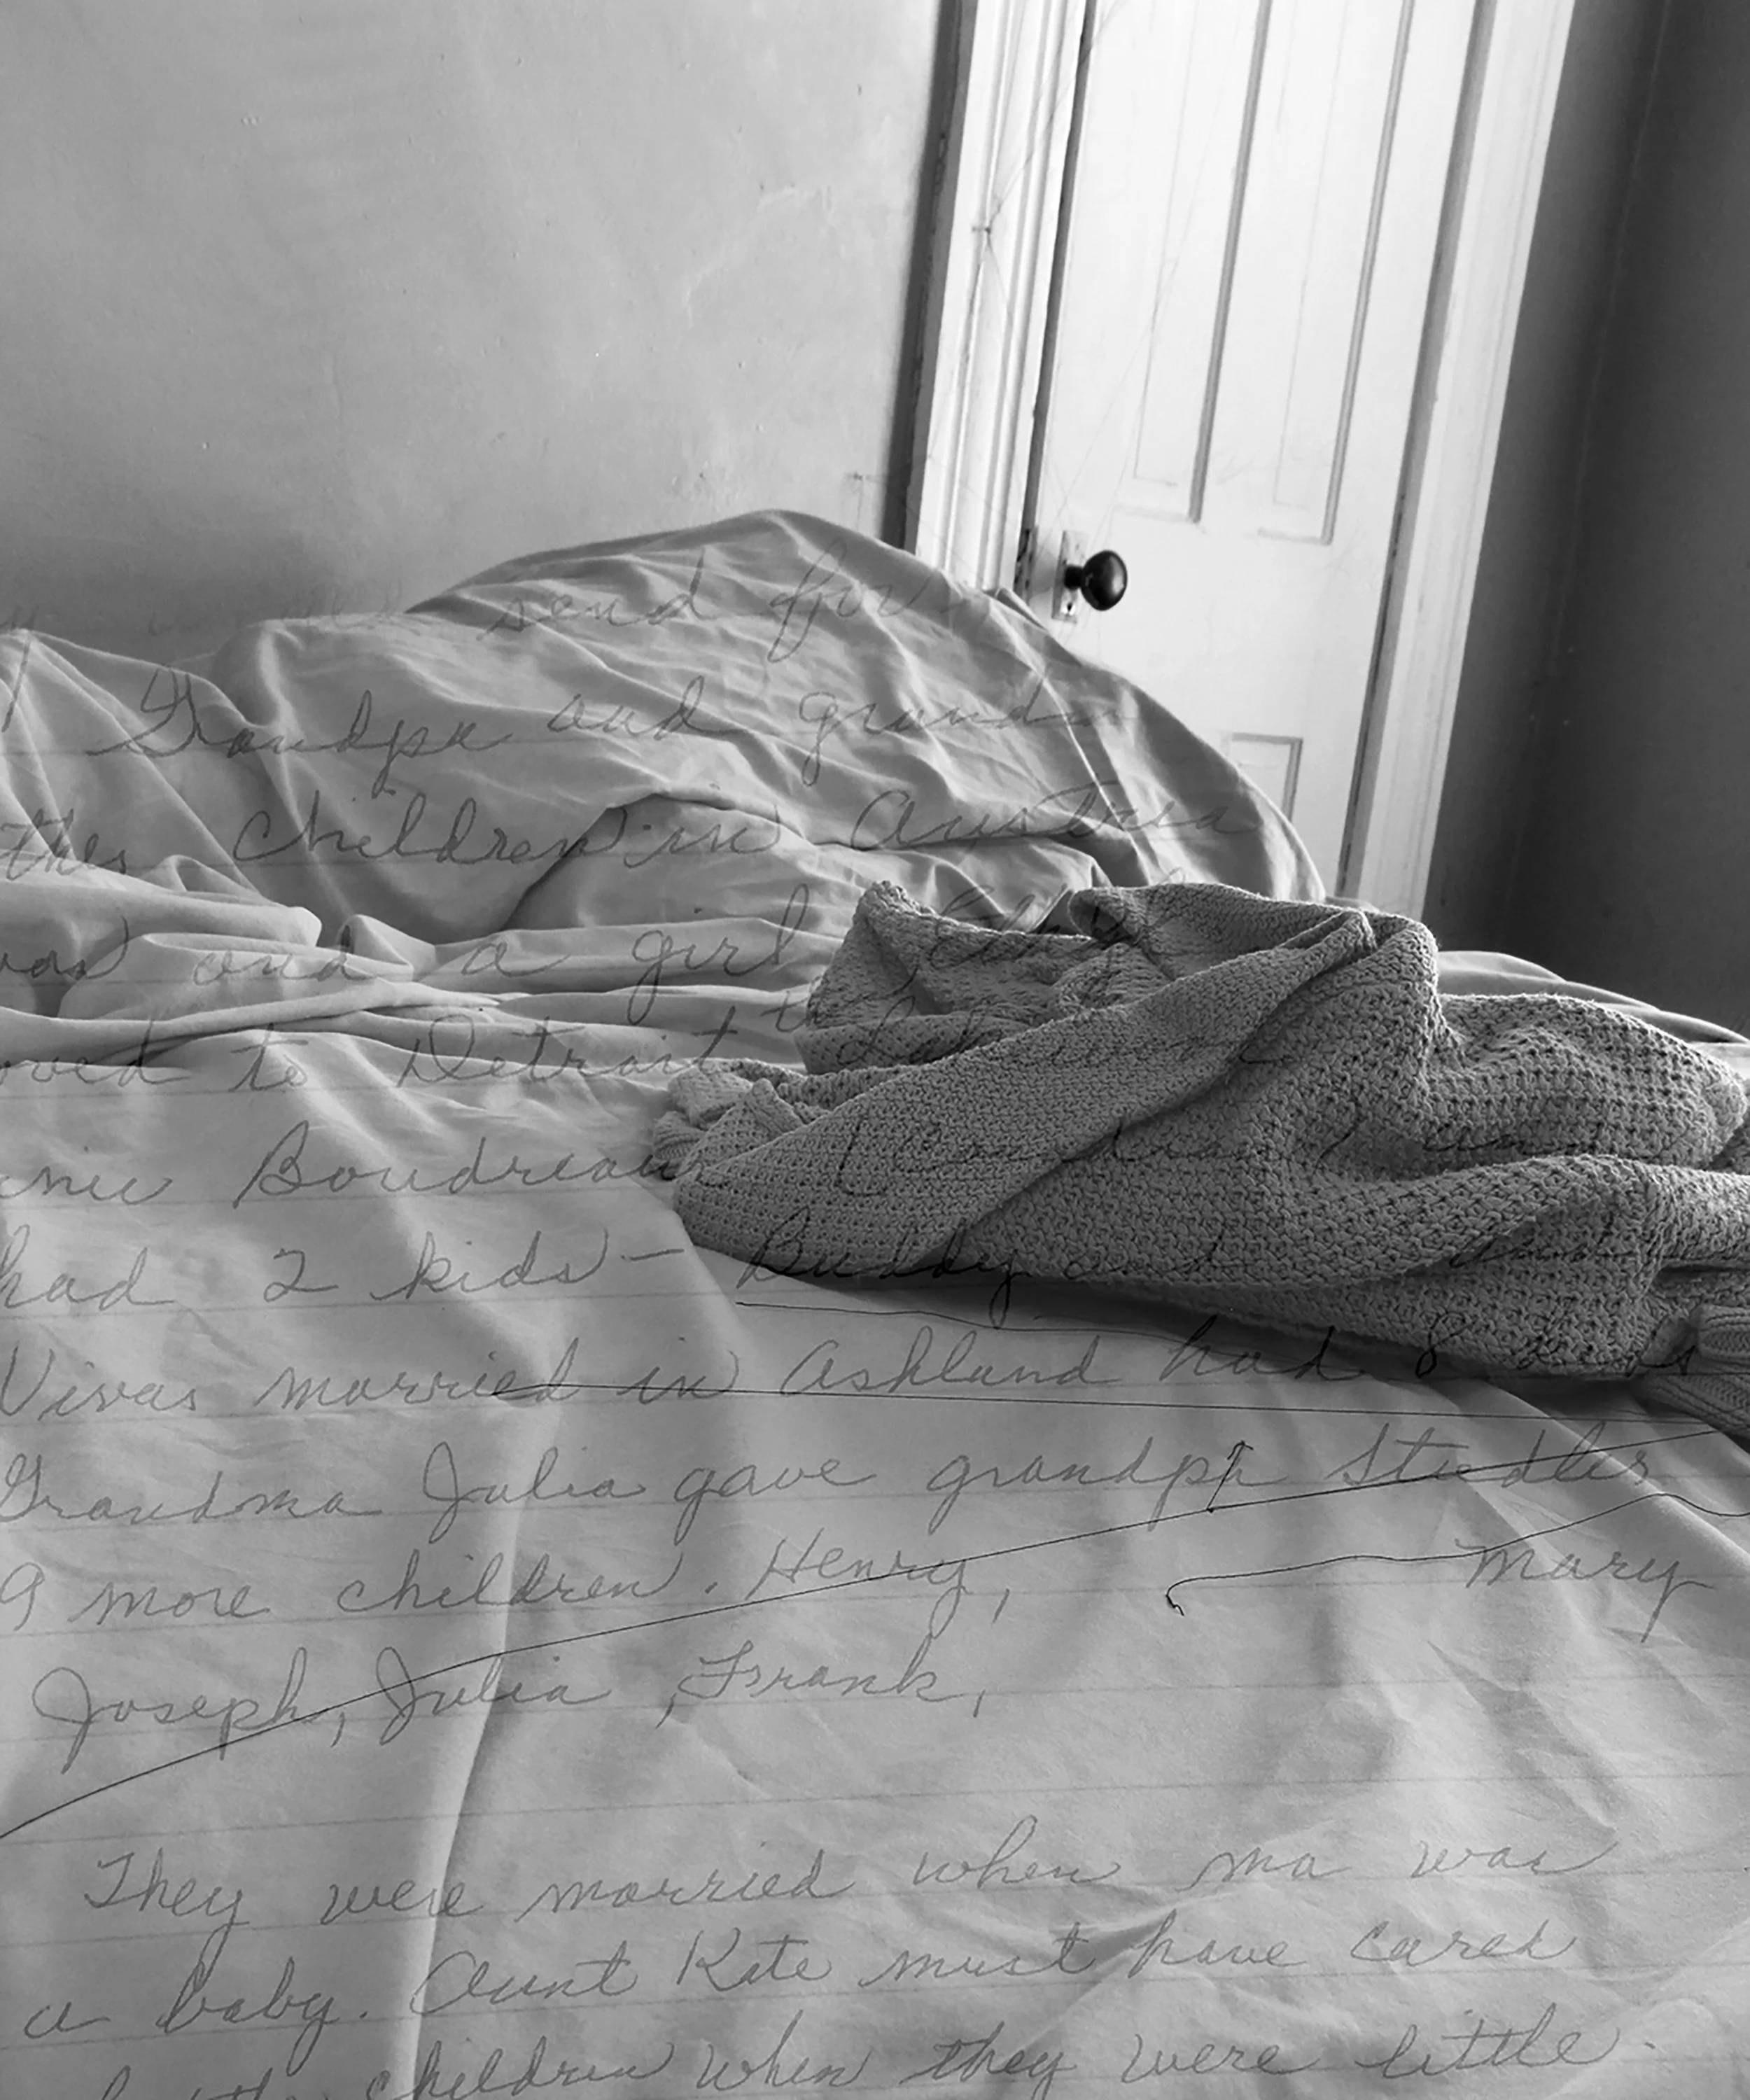 send for
Grandpa and grandm
children in Austria
and a girl
oved to Detroit
Boudreaux
had 2 kids - Buddy and
Vivas married in Ashland had 8
Grandma Julia gave grandpa Stiedler
9 more children. Henry, Mary
Joseph, Julia, Frank,
They were married when ma was
a baby. Aunt Kate must have cared
children when they were little.